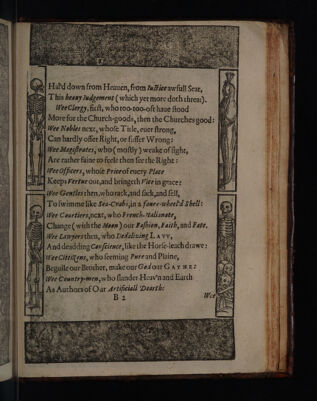 Hal'd down from Heauen, from Iustice awfull Seat,
This heauy Iudgement (which yet more doth threat).
Wee Clergy, first, who too-too-oft haue stood
More for the Church-goods, then the Churches good:
Wee Nobles next, whose Title, euer strong,
Can hardly offer Right, or suffer Wrong:
Wee Magistrates, who (mostly) weake of sight,
Are rather faine to feele then see the Right:
Wee Officers, whose Price of euery Place
Keeps Vertue out, and bringeth Vice in grace:
Wee Gentles then, who rack, and sack, and sell,
To swimme like Sea-Crabs, in a foure-wheel'd Shell:
Wee Courtiers, next, who French-Italianate,
Change (with the Moon) our Fashion, Faith, and Fate.
Wee Lawyers then, who Dedalizing LAVV,
And deadding Conscience, like the Horse-leach drawe:
Wee Cittizens, who seeming Pure and Plaine,
Beguile our Brother, make our God our GAYNE:
Wee Country-men, who slander Heav'n and Earth
As Authors of Our Artificiall Dearth:
B 2
Wee